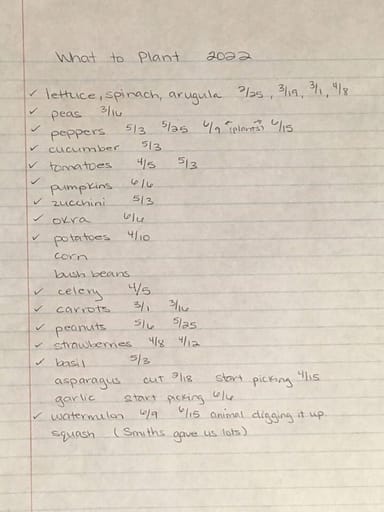 What to Plant 2022
✓ lettuce, spinach, arugula 2/25, 3/19, 3/1, 4/8
✓ peas 3/16
✓ peppers 5/3 5/25 6/9 "(plants)" 6/15
✓ cucumber 5/3
✓ tomatoes 4/5 5/3
✓ pumpkins 6/6
✓ zucchini 5/3
✓ okra 6/6
✓ potatoes 4/10
corn
bush beans
✓ celery 4/5
✓ carrots 3/1 3/16
✓ peanuts 5/6 5/25
✓ strawberries 4/8 4/12
✓ basil 5/3
asparagus cut 2/18 start picking 4/15
garlic start picking 6/6
✓ watermelon 6/9 6/15 animal digging it up
squash (Smiths gave us lots)